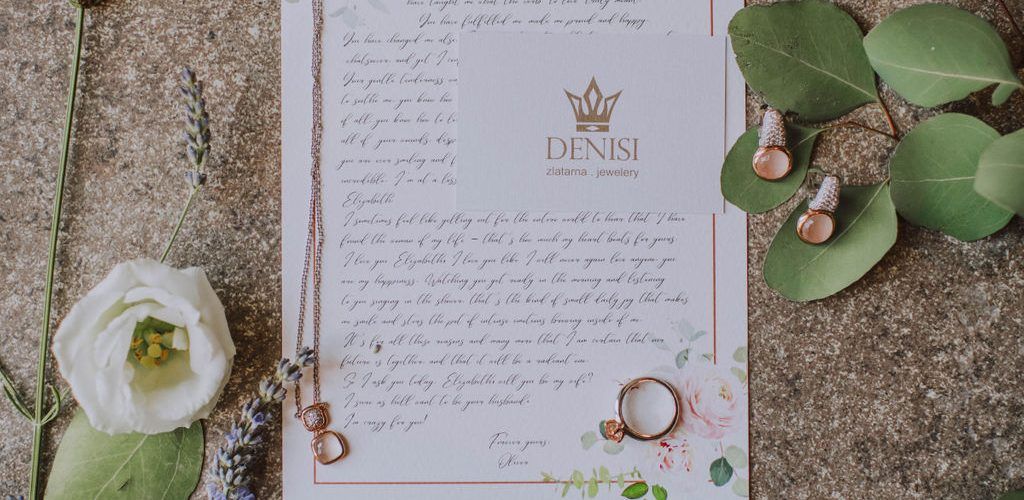 have taught me what the verb to love really means.
You have fulfilled me made me proud and happy.
You have changed me also
whatsoever and yet, I
Your gentle tenderness
to soothe me, you know how
if all you know how to
all of your wounds,
you are ever smiling and
incredible. I'm at a loss
Elizabeth
DENISI
zlatarna . jewelery
I sometimes feel like yelling out for the entire world to hear that I have
found the woman of my life – that's how much my heart beats for yours.
I love you Elizabeth I love you like I will never again love anyone, you
are my happiness. Watching you get ready in the morning and listening
to you singing in the shower that's the kind of small daily joy that makes
me smile and stirs the pot of intense emotions brewing inside of me.
It's for all these reasons and many more that I am certain that our
future is together, and that it will be a radiant one.
So I ask you today, Elizabeth will you be my wife?
I sure as hell want to be your husband.
I'm crazy for you!
Forever yours,
Oliver